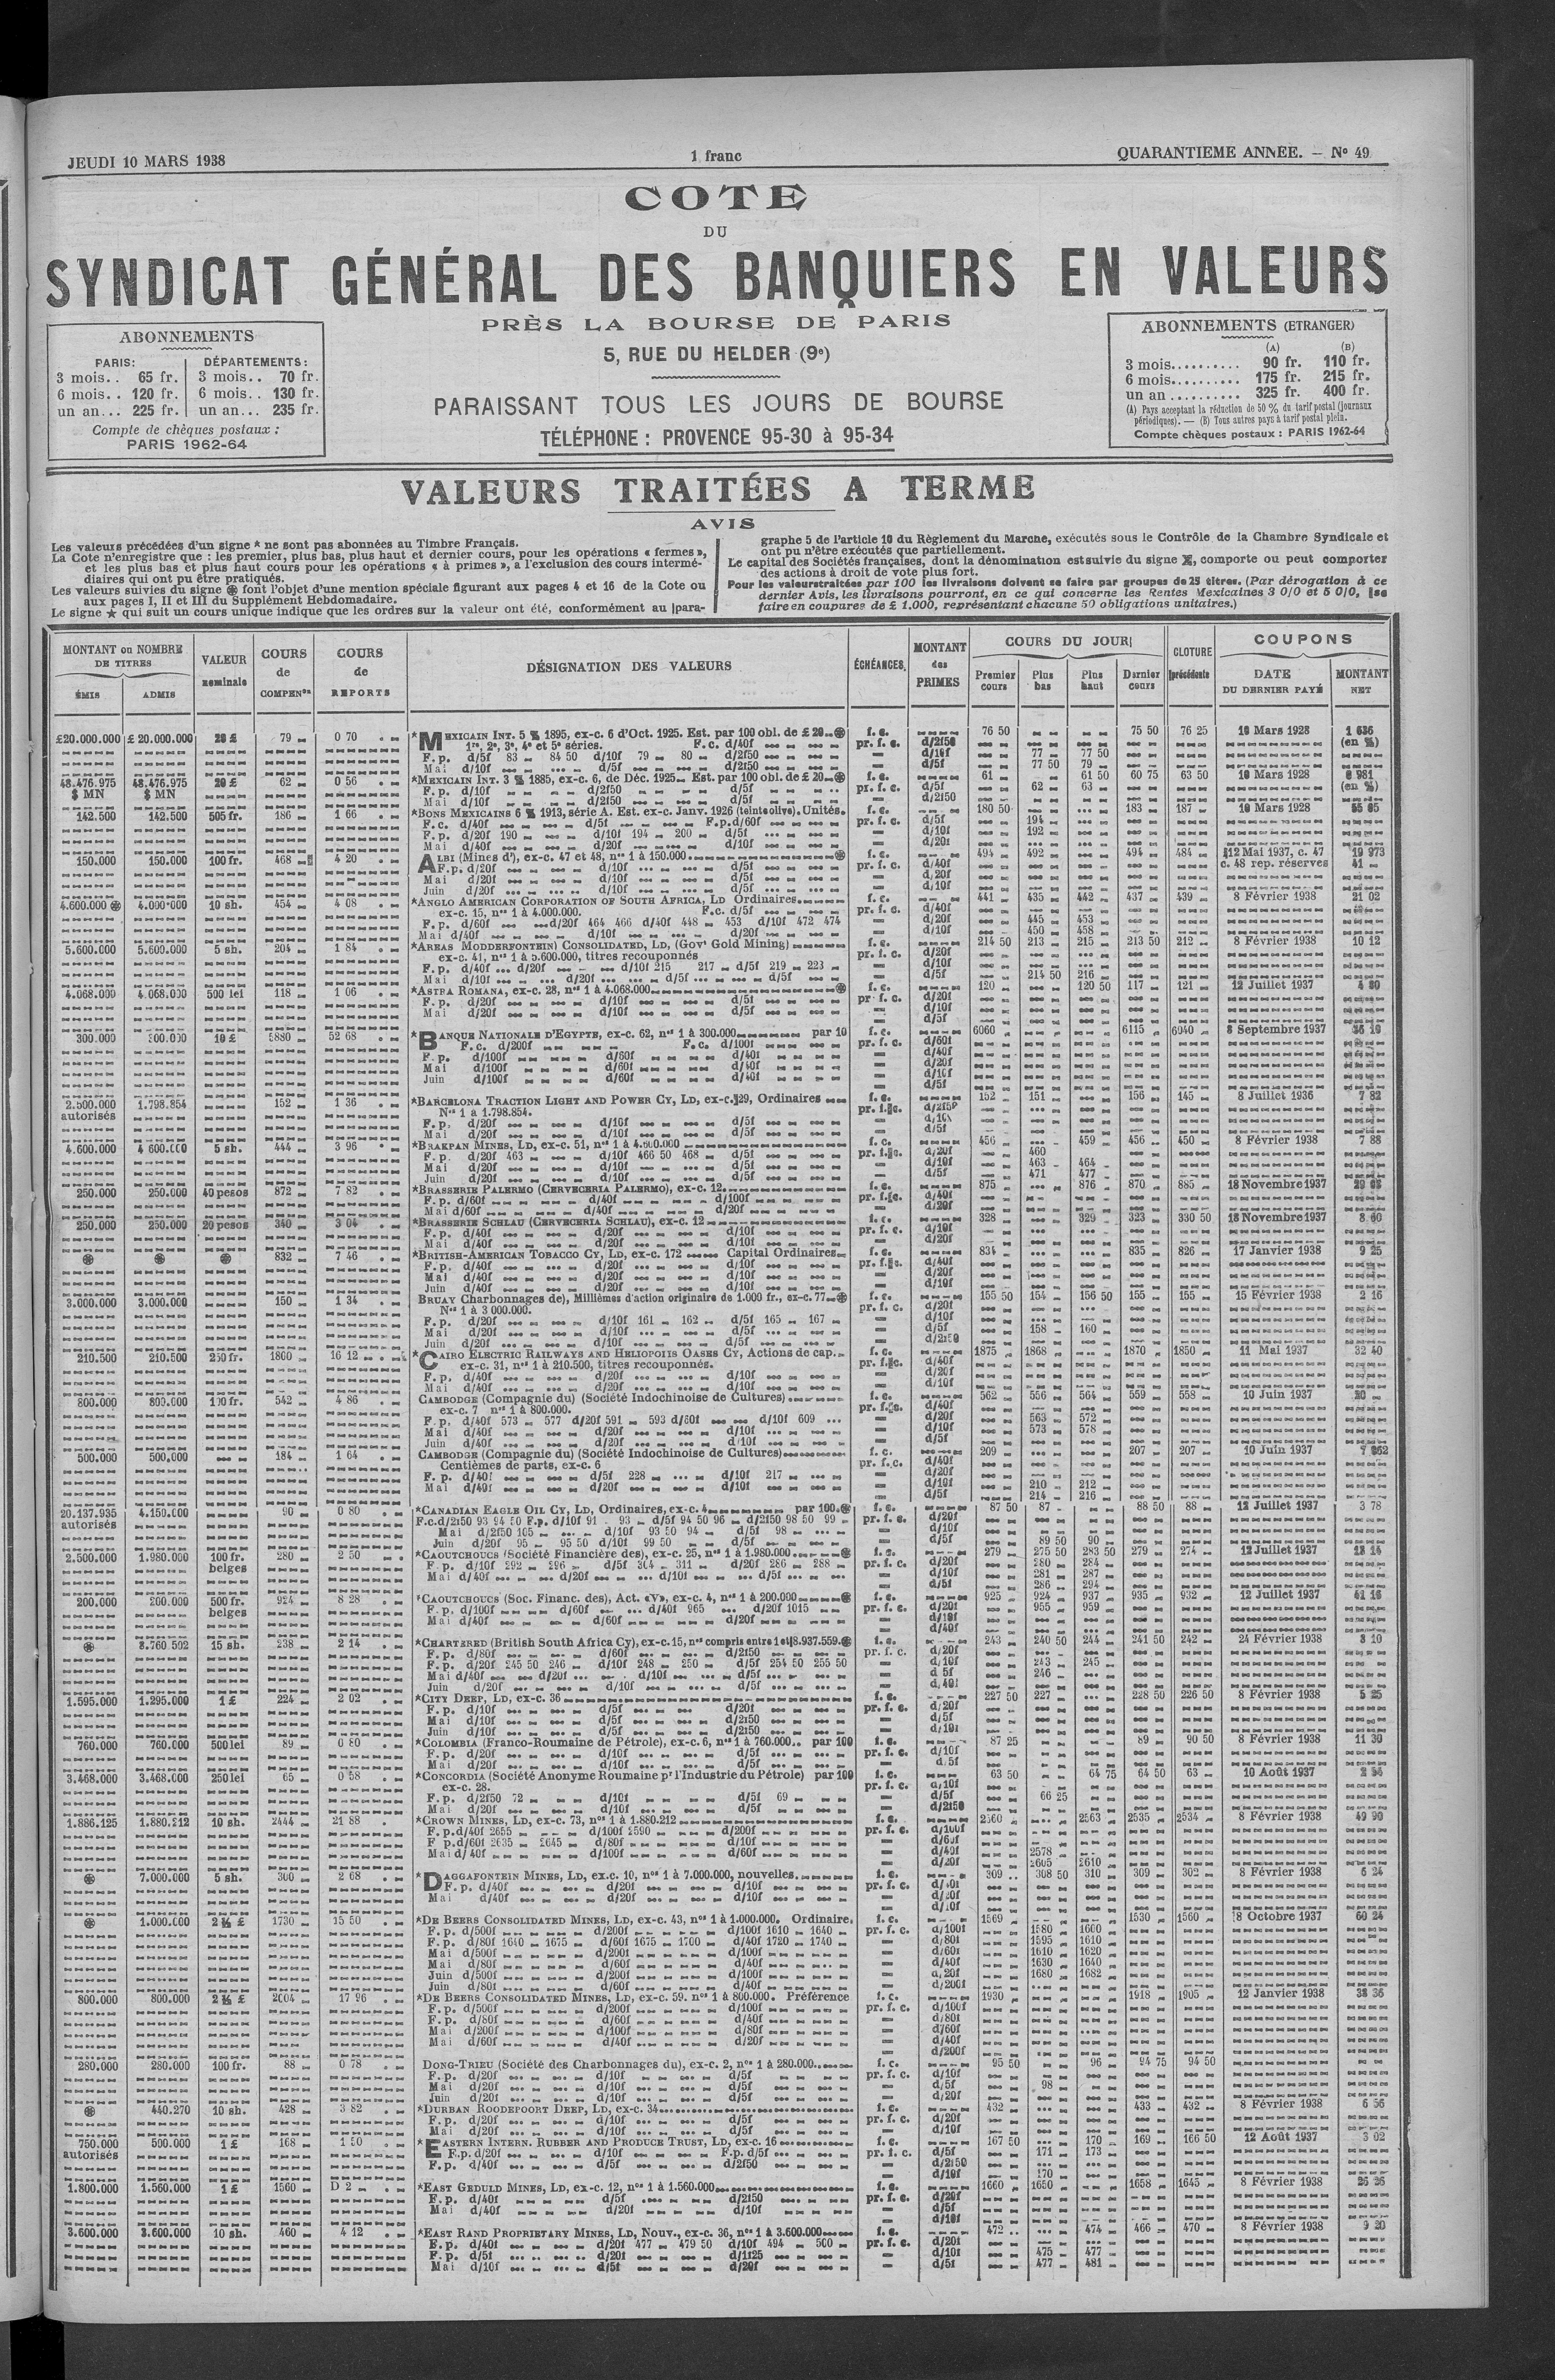 JEUDI 10 MARS 1938
1 franc
QUARANTIEME ANNEE. — Nº 49
COTE
DU
SYNDICAT GÉNÉRAL DES BANQUIERS EN VALEURS
PRÈS LA BOURSE DE PARIS
5, RUE DU HELDER (9e)
PARAISSANT TOUS LES JOURS DE BOURSE
TÉLÉPHONE : PROVENCE 95-30 à 95-34
ABONNEMENTS
PARIS: DÉPARTEMENTS:
3 mois.. 65 fr. 3 mois.. 70 fr.
6 mois.. 120 fr. 6 mois.. 130 fr.
un an... 225 fr. un an... 235 fr.
Compte de chèques postaux :
PARIS 1962-64
ABONNEMENTS (ETRANGER)
(A) (B)
3 mois.......... 90 fr. 110 fr.
6 mois.......... 175 fr. 215 fr.
un an .......... 325 fr. 400 fr.
(A) Pays acceptant la réduction de 50 % du tarif postal (journaux
périodiques). — (B) Tous autres pays à tarif postal plein.
Compte chèques postaux : PARIS 1962-64
VALEURS TRAITÉES A TERME
AVIS
Les valeurs précédées d'un signe * ne sont pas abonnées au Timbre Français.
La Cote n'enregistre que : les premier, plus bas, plus haut et dernier cours, pour les opérations « fermes »,
et les plus bas et plus haut cours pour les opérations « à primes », a l'exclusion des cours intermé-
diaires qui ont pu être pratiqués.
Les valeurs suivies du signe ⊛ font l'objet d'une mention spéciale figurant aux pages 4 et 16 de la Cote ou
aux pages I, II et III du Supplément Hebdomadaire.
Le signe ★ qui suit un cours unique indique que les ordres sur la valeur ont été, conformément au para-
graphe 5 de l'article 10 du Règlement du Marche, exécutés sous le Contrôle de la Chambre Syndicale et
ont pu n'être exécutés que partiellement.
Le capital des Sociétés françaises, dont la dénomination est suivie du signe, comporte ou peut comporter
des actions à droit de vote plus fort.
Pour les valeurs traitées par 100 les livraisons doivent se faire par groupes de 25 titres. (Par dérogation à ce
dernier Avis, les livraisons pourront, en ce qui concerne les Rentes Mexicaines 3 0/0 et 5 0/0, se
faire en coupures de £ 1.000, représentant chacune 50 obligations unitaires.)
MONTANT ou NOMBRE DE TITRES
ÉMIS ADMIS
VALEUR nominale
COURS de COMPENon
COURS de REPORTS
DÉSIGNATION DES VALEURS
ÉCHÉANCES
MONTANT des PRIMES
COURS DU JOUR
Premier cours Plus bas Plus haut Dernier cours
CLOTURE précédente
COUPONS
DATE DU DERNIER PAYÉ
MONTANT NET
£20.000.000 £ 20.000.000 20 £ 79 0 70 *MEXICAIN INT. 5 % 1895, ex-c. 6 d'Oct. 1925. Est. par 100 obl. de £ 20 f. c. 76 50 75 50 76 25 10 Mars 1928
1re, 2e, 3e, 4e et 5e séries. F. c. d/40f pr. f. c. d/2f50 (en %)
F. p. d/5f 83 84 50 d/10f 79 80 d/2f50 d/10f 77 77 50
Mai d/10f d/5f d/2f50 d/5f 77 50 79
48.476.975 48.476.975 20 £ 62 0 56 *MEXICAIN INT. 3 % 1885, ex-c. 6, de Déc. 1925 Est. par 100 obl. de £ 20 f. c. 61 61 50 60 75 63 50 10 Mars 1928
$ MN $ MN F. p. d/10f d/2f50 d/5f pr. f. c. d/5f 62 63 (en %)
Mai d/10f d/2f50 d/5f d/2f50
142.500 142.500 505 fr. 186 1 66 *BONS MEXICAINS 6 % 1913, série A. Est. ex-c. Janv. 1926 (teinte olive). Unités. f. c. 180 50 183 187 10 Mars 1928
F. c. d/40f d/5f F. p. d/60f pr. f. c. d/5f 194
F. p. d/20f 190 d/10f 194 200 d/5f d/10f 192
Mai d/40f d/20f d/10f d/20f
150.000 150.000 100 fr. 468 4 20 ALBI (Mines d'), ex-c. 47 et 48, nos 1 à 150.000 f. c. 494 492 494 484 12 Mai 1937, c. 47 19 973
F. p. d/20f d/10f d/5f pr. f. c. d/40f c. 48 rep. réserves 41
Mai d/20f d/10f d/5f d/20f
Juin d/20f d/10f d/5f d/10f
4.600.000 4.000.000 10 sh. 454 4 08 *ANGLO AMERICAN CORPORATION OF SOUTH AFRICA, LD Ordinaires f. c. 441 435 442 437 439 8 Février 1938 21 02
ex-c. 15, nos 1 à 4.000.000. F. c. d/5f pr. f. c. d/40f
F. p. d/60f d/20f 464 466 d/40f 448 453 d/10f 472 474 d/20f 445 453
Mai d/40f d/10f d/20f d/10f 450 458
5.600.000 5.600.000 5 sh. 204 1 84 *AREAS MODDERFONTEIN CONSOLIDATED, LD, (Govt Gold Mining) f. c. 214 50 213 215 213 50 212 8 Février 1938 10 12
ex-c. 41, nos 1 à 5.600.000, titres recouponnés pr. f. c. d/20f
F. p. d/40f d/20f d/10f 215 217 d/5f 219 223 d/10f
Mai d/10f d/20f d/5f d/5f d/5f 214 50 216
4.068.000 4.068.000 500 lei 118 1 06 *ASTRA ROMANA, ex-c. 28, nos 1 à 4.068.000 f. c. 120 120 50 117 121 12 Juillet 1937 4 80
F. p. d/20f d/10f d/5f pr. f. c. d/20f
Mai d/20f d/10f d/5f d/10f
d/5f
300.000 300.000 10 £ 5880 52 68 *BANQUE NATIONALE D'EGYPTE, ex-c. 62, nos 1 à 300.000 par 10 f. c. 6060 6115 6040 8 Septembre 1937
F. c. d/200f F. c. d/100f pr. f. c. d/60f
F. p. d/100f d/60f d/40f d/40f
Mai d/100f d/60f d/40f d/20f
Juin d/100f d/60f d/40f d/10f
d/5f
2.500.000 1.798.854 152 1 36 *BARCELONA TRACTION LIGHT AND POWER CY, LD, ex-c. 29, Ordinaires f. c. 152 151 156 145 8 Juillet 1936 7 82
autorisés Nos 1 à 1.798.854. pr. f. c. d/2f50
F. p. d/20f d/10f d/5f d/10f
Mai d/20f d/10f d/5f d/5f
4.600.000 4.600.000 5 sh. 444 3 96 *BRAKPAN MINES, LD, ex-c. 51, nos 1 à 4.600.000 f. c. 456 459 456 450 8 Février 1938 7 88
F. p. d/20f 463 d/10f 466 50 468 d/5f pr. f. c. d/20f 460
Mai d/20f d/10f d/5f d/10f 463 464
Juin d/20f d/10f d/5f d/5f 471 477
250.000 250.000 40 pesos 872 7 82 *BRASSERIE PALERMO (CERVECERIA PALERMO), ex-c. 12 f. c. 875 876 870 885 18 Novembre 1937
F. p. d/60f d/40f d/100f pr. f. c. d/40f
Mai d/60f d/40f d/20f d/20f
250.000 250.000 20 pesos 340 3 04 *BRASSERIE SCHLAU (CERVECERIA SCHLAU), ex-c. 12 f. c. 328 329 323 330 50 18 Novembre 1937
F. p. d/40f d/20f d/10f pr. f. c. d/10f
Mai d/40f d/20f d/10f d/20f
832 7 46 *BRITISH-AMERICAN TOBACCO CY, LD, ex-c. 172 Capital Ordinaires f. c. 834 835 826 17 Janvier 1938 9 25
F. p. d/40f d/20f d/10f pr. f. c. d/40f
Mai d/40f d/20f d/10f d/20f
Juin d/40f d/20f d/10f d/10f
3.000.000 3.000.000 150 1 34 BRUAY Charbonnages de), Millièmes d'action originaire de 1.000 fr., ex-c. 77 f. c. 155 50 154 156 50 155 155 15 Février 1938 2 16
Nos 1 à 3 000.000. pr. f. c. d/20f
F. p. d/20f d/10f 161 162 d/5f 165 167 d/10f
Mai d/20f d/10f d/5f d/5f 158 160
Juin d/20f d/10f d/5f d/2f50
210.500 210.500 250 fr. 1800 16 12 *CAIRO ELECTRIC RAILWAYS AND HELIOPOLIS OASES CY, Actions de cap. f. c. 1875 1868 1870 1850 11 Mai 1937 32 40
ex-c. 31, nos 1 à 210.500, titres recouponnés. pr. f. c. d/40f
F. p. d/40f d/20f d/10f d/20f
Mai d/40f d/20f d/10f d/10f
800.000 800.000 100 fr. 542 4 86 CAMBODGE (Compagnie du) (Société Indochinoise de Cultures) f. c. 562 556 564 559 558 10 Juin 1937 20
ex-c. 7 nos 1 à 800.000. pr. f. c. d/40f
F. p. d/40f 573 577 d/20f 591 593 d/50f d/10f 609 d/20f 563 572
Mai d/40f d/20f d/10f d/10f 573 578
Juin d/40f d/20f d/10f d/5f
500.000 500.000 184 1 64 CAMBODGE (Compagnie du) (Société Indochinoise de Cultures) f. c. 209 207 207 10 Juin 1937
Centièmes de parts, ex-c. 6 pr. f. c. d/40f
F. p. d/40f d/5f 228 d/10f 217 d/20f
Mai d/40f d/20f d/10f d/10f 210 212
d/5f 214 216
20.137.935 4.150.000 90 0 80 *CANADIAN EAGLE OIL CY, LD, Ordinaires, ex-c. 4 par 100 f. c. 87 50 87 88 50 88 12 Juillet 1937 3 78
autorisés F. c. d/2f50 93 94 50 F. p. d/10f 91 93 d/5f 94 50 96 d/2f50 98 50 99 pr. f. c. d/20f
Mai d/2f50 105 d/10f 93 50 94 d/5f 98 d/10f
Juin d/20f 95 95 50 d/10f 99 50 d/5f d/5f 89 50 90
2.500.000 1.980.000 100 fr. 280 2 50 *CAOUTCHOUCS (Société Financière des), ex-c. 25, nos 1 à 1.980.000 f. c. 279 275 50 283 50 279 274 12 Juillet 1937
belges F. p. d/10f 292 296 d/5f 304 311 d/20f 286 288 pr. f. c. d/20f 280 284
Mai d/40f d/20f d/10f d/5f d/10f 281 287
d/5f 286 294
200.000 200.000 500 fr. 924 8 28 *CAOUTCHOUCS (Soc. Financ. des), Act. «V», ex-c. 4, nos 1 à 200.000 f. c. 925 924 937 935 932 12 Juillet 1937
belges F. p. d/100f d/60f d/40f 965 d/20f 1015 pr. f. c. d/20f 955 959
Mai d/40f d/60f d/20f d/10f
d/40f
8.760.592 15 sh. 238 2 14 *CHARTERED (British South Africa Cy), ex-c. 15, nos compris entre 1 et 8.937.559. f. c. 243 240 50 244 241 50 242 24 Février 1938 3 10
F. p. d/80f d/60f d/2f50 pr. f. c. d/20f
F. p. d/20f 245 50 246 d/10f 248 250 d/5f 254 50 255 50 d/10f 243 245
Mai d/40f d/20f d/10f d/5f d/5f 246
Juin d/20f d/10f d/5f d/40f
1.595.000 1.295.000 1 £ 224 2 02 *CITY DEEP, LD, ex-c. 36 f. c. 227 50 227 228 50 226 50 8 Février 1938 5 25
F. p. d/10f d/5f d/20f pr. f. c. d/20f
Mai d/10f d/5f d/2f50 d/5f
Juin d/10f d/5f d/2f50 d/10f
760.000 760.000 500 lei 89 0 80 *COLOMBIA (Franco-Roumaine de Pétrole), ex-c. 6, nos 1 à 760.000. par 100 f. c. 87 25 89 90 50 8 Février 1938 11 30
F. p. d/20f d/10f d/5f pr. f. c. d/10f
Mai d/20f d/10f d/5f d/5f
3.468.000 3.468.000 250 lei 65 0 58 *CONCORDIA (Société Anonyme Roumaine pr l'Industrie du Pétrole) par 100 f. c. 63 50 64 75 64 50 63 10 Août 1937
ex-c. 28. pr. f. c. d/10f
F. p. d/2f50 72 d/10f d/5f 69 d/5f 66 25
Mai d/20f d/10f d/5f d/2f50
1.886.125 1.880.212 10 sh. 2444 21 88 *CROWN MINES, LD, ex-c. 73, nos 1 à 1.880.212 f. c. 2560 2563 2535 2534 8 Février 1938
F. p. d/40f 2655 d/100f 2590 d/200f pr. f. c. d/100f
F. p. d/60f 2635 2645 d/80f d/10f d/60f
Mai d/40f d/100f d/60f d/40f 2578
d/20f 2605 2610
7.000.000 5 sh. 300 2 68 *DAGGAFONTEIN MINES, LD, ex-c. 10, nos 1 à 7.000.000, nouvelles f. c. 309 308 50 310 309 302 8 Février 1938 6 24
F. p. d/40f d/20f d/10f pr. f. c.
Mai d/40f d/20f d/10f
1.000.000 2 ½ £ 1730 15 50 *DE BEERS CONSOLIDATED MINES, LD, ex-c. 43, nos 1 à 1.000.000. Ordinaire. f. c. 1569 1530 1560 8 Octobre 1937 60 24
F. p. d/500f d/200f d/100f 1610 1640 pr. f. c. d/100f 1580 1600
F. p. d/80f 1640 1675 d/60f 1675 1700 d/40f 1720 1740 d/80f 1595 1610
Mai d/500f d/200f d/100f d/60f 1610 1620
Mai d/80f d/60f d/40f d/40f 1630 1640
Juin d/500f d/200f d/100f d/20f 1680 1682
Juin d/80f d/60f d/40f d/200f
800.000 800.000 2 ½ £ 2004 17 96 *DE BEERS CONSOLIDATED MINES, LD, ex-c. 59. nos 1 à 800.000. Préférence f. c. 1930 1918 1905 12 Janvier 1938 38 36
F. p. d/500f d/200f d/100f pr. f. c. d/100f
F. p. d/80f d/60f d/40f d/80f
Mai d/200f d/100f d/80f d/60f
Mai d/60f d/40f d/20f d/40f
d/200f
280.000 280.000 100 fr. 88 0 78 DONG-TRIEU (Société des Charbonnages du), ex-c. 2, nos 1 à 280.000 f. c. 95 50 96 94 75 94 50
F. p. d/20f d/10f d/5f pr. f. c. d/10f
Mai d/20f d/10f d/5f d/5f 98
Juin d/20f d/10f d/5f d/20f
440.270 10 sh. 428 3 82 *DURBAN ROODEPOORT DEEP, LD, ex-c. 34 f. c. 432 433 432 8 Février 1938 6 56
F. p. d/20f d/10f d/5f pr. f. c. d/20f
Mai d/20f d/10f d/5f d/10f
750.000 500.000 1 £ 168 1 50 *EASTERN INTERN. RUBBER AND PRODUCE TRUST, LD, ex-c. 16 f. c. 167 50 170 169 166 50 12 Août 1937 3 02
autorisés F. p. d/20f d/10f F. p. d/5f pr. f. c. d/5f 171 173
F. p. d/40f d/5f d/2f50 d/2f50
d/10f 170
1.800.000 1.560.000 1 £ 1560 D 2 *EAST GEDULD MINES, LD, ex-c. 12, nos 1 à 1.560.000 f. c. 1660 1650 1658 1645 8 Février 1938
F. p. d/40f d/5f d/2f50 pr. f. c. d/20f
Mai d/40f d/20f d/10f d/5f
d/10f
3.600.000 3.600.000 10 sh. 460 4 12 *EAST RAND PROPRIETARY MINES, LD, Nouv., ex-c. 36, nos 1 à 3.600.000 f. c. 472 474 466 470 8 Février 1938 9 20
F. p. d/40f d/20f 477 479 50 d/10f 494 500 pr. f. c. d/20f
F. p. d/5f d/20f d/1f25 d/10f 475 477
Mai d/10f d/5f d/20f d/5f 477 481